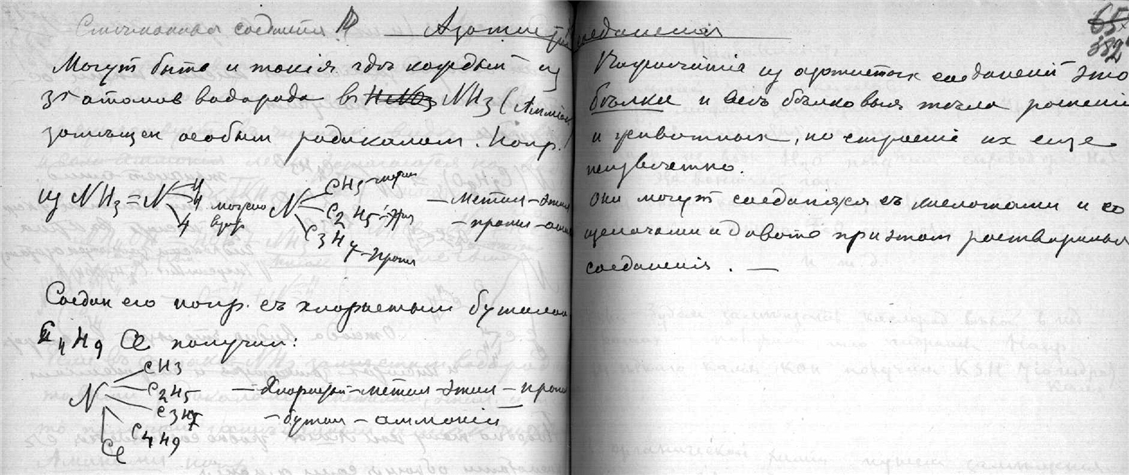 Смешанныя соединен
Азотист соединения
652
332
Могут быть и такія гдѣ каждый из
3х атомов водорода въ NH3 (Амміак
замѣщен особым радикалом. Напр.
из NH3 = N H H H можно N CH3 - метил - метил - этил
C2H5 - этил - пропил - амин
C3H7 - пропил
Соедин его напр. съ хлористым бутилом
C4H9 Cl получим:
N CH3
C2H5 - Хлористый - метил - этил - пропил
C3H7 - бутил - аммоній
C4H9
Cl
из азотистых соединеній это
бѣлки и всѣ бѣлковыя тѣла растеній
и животных, но строеніе их еще
неизвѣстно.
Они могут соединяться съ кислотами и со
щелочами и давать при этом растворимыя
соединенія. —